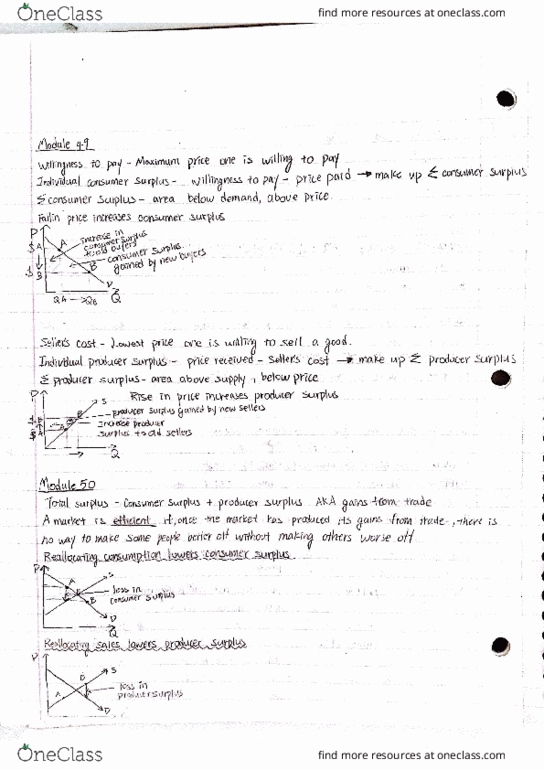 OneClass
find more resources at oneclass.com
Module 49
Willingness to pay - Maximum price one is willing to pay
Individual consumer surplus - willingness to pay - price paid → make up Σ consumer surplus
Σ consumer surplus - area below demand, above price
Fall in price increases consumer surplus
P
increase in
consumer surplus
to old buyers
A
consumer surplus
gained by new buyers
B
D
QA → QB
Q
Seller's cost - Lowest price one is willing to sell a good.
Individual producer surplus - price received - seller's cost → make up Σ producer surplus
Σ producer surplus - area above supply, below price
P
S
Rise in price increases producer surplus
producer surplus gained by new sellers
Increase producer
surplus to old sellers
Q
Module 50
Total surplus - Consumer surplus + producer surplus AKA gains from trade
A market is efficient if, once the market has produced its gains from trade, there is
no way to make some people better off without making others worse off
Reallocating consumption lowers consumer surplus
P
S
A
loss in
consumer surplus
B
D
Q
Reallocating sales lowers producer surplus
P
S
B
A
loss in
producer surplus
D
OneClass
find more resources at oneclass.com